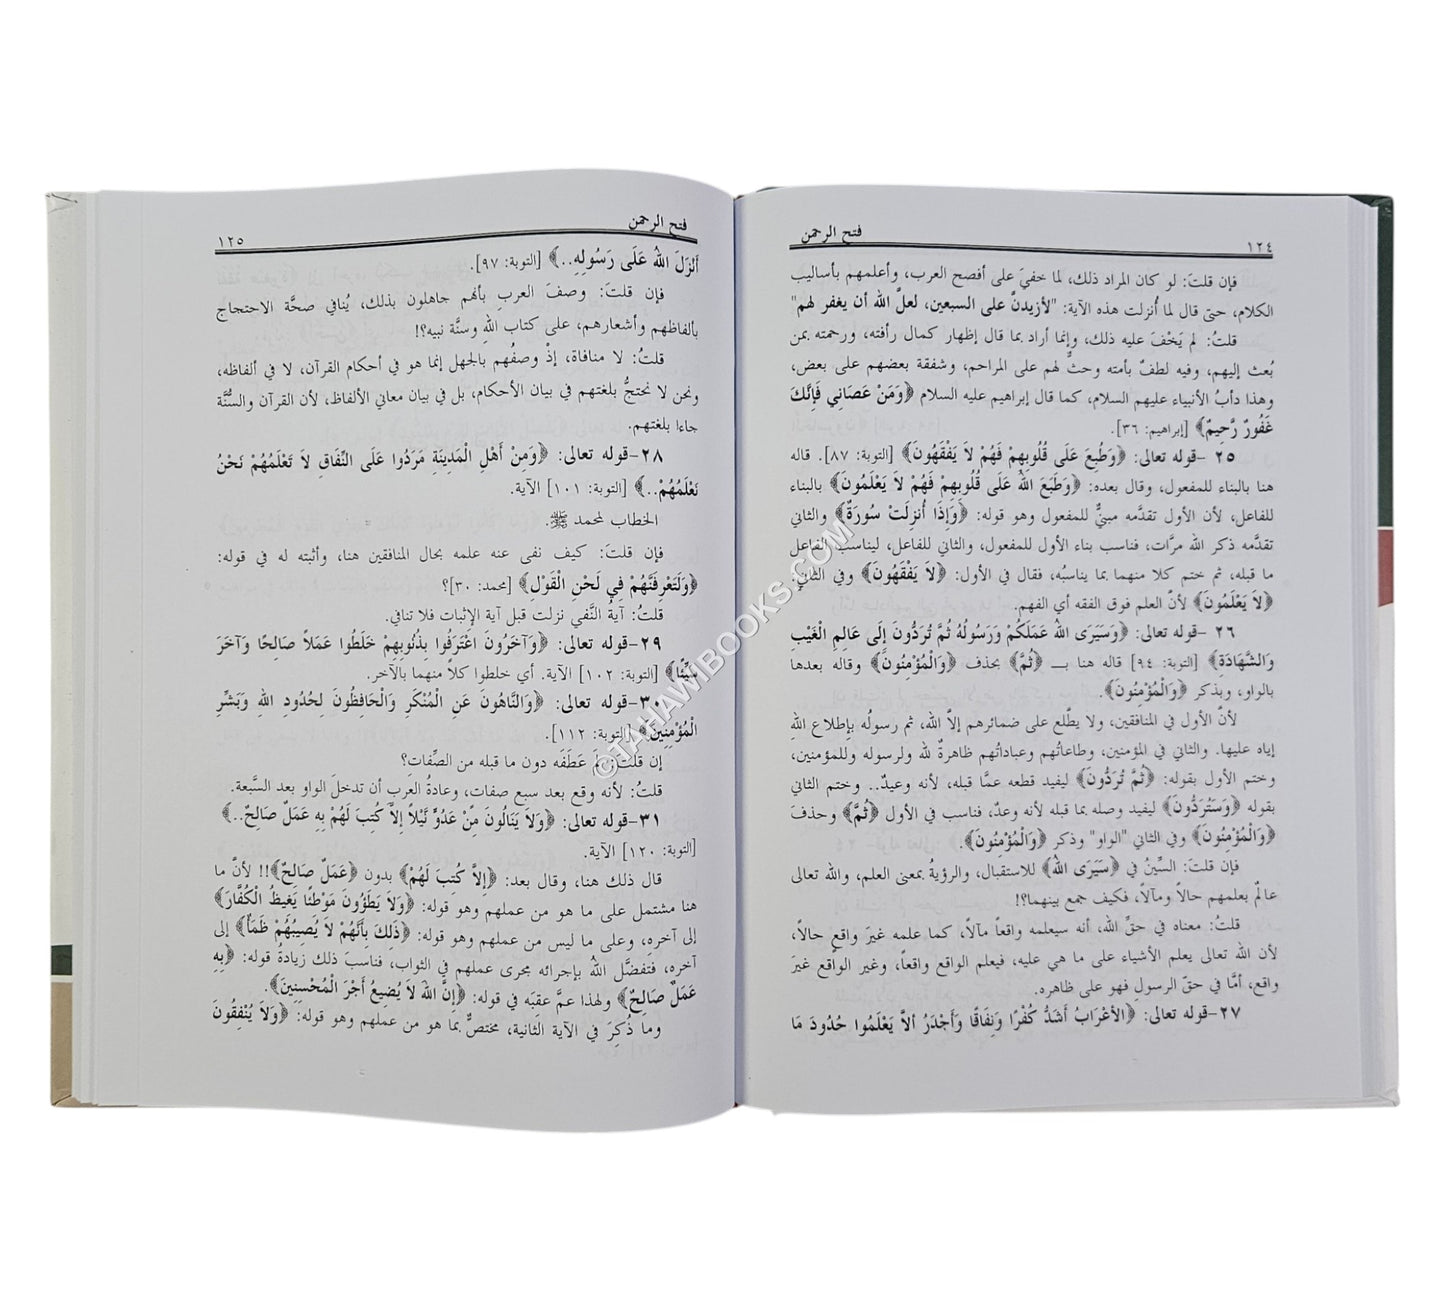 ١٢٤
فتح الرحمن
فإن قلتَ: لو كان المراد ذلك، لما خفيَ على أفصح العرب، وأعلمهم بأساليب
الكلام، حتى قال لما أُنزلت هذه الآية: "لأزيدنَّ على السبعين، لعلَّ الله أن يغفر لهم"
قلتُ: لم يَخْفَ عليه ذلك، وإنما أراد بما قال إظهار كمال رأفته، ورحمته بمن
بُعث إليهم، وفيه لطفٌ بأمته وحثٌّ لهم على المراحم، وشفقة بعضهم على بعض،
وهذا دأبُ الأنبياء عليهم السلام، كما قال إبراهيم عليه السلام ﴿وَمَنْ عَصَانِي فَإِنَّكَ
غَفُورٌ رَّحِيمٌ﴾ [إبراهيم: ٣٦].
٢٥ -قوله تعالى: ﴿وَطُبِعَ عَلَى قُلُوبِهِمْ فَهُمْ لاَ يَفْقَهُونَ﴾ [التوبة: ٨٧]. قاله
هنا بالبناء للمفعول، وقال بعده: ﴿وَطَبَعَ اللهُ عَلَى قُلُوبِهِمْ فَهُمْ لاَ يَعْلَمُونَ﴾ بالبناء
للفاعل، لأن الأول تقدَّمه مبنيٌّ للمفعول وهو قوله: ﴿وَإِذَا أُنزِلَتْ سُورَةٌ﴾ والثاني
تقدَّمه ذكر الله مرَّات، فناسب بناء الأول للمفعول، والثاني للفاعل، ليناسب الفاعل
ما قبله، ثم ختم كلا منهما بما يناسبُه، فقال في الأول: ﴿لاَ يَفْقَهُونَ﴾ وفي الثاني:
﴿لاَ يَعْلَمُونَ﴾ لأنَّ العلم فوق الفقه أي الفهم.
٢٦ -قوله تعالى: ﴿وَسَيَرَى اللهُ عَمَلَكُمْ وَرَسُولُهُ ثُمَّ تُرَدُّونَ إِلَى عَالِمِ الْغَيْبِ
وَالشَّهَادَةِ﴾ [التوبة: ٩٤] قاله هنا بـــ ﴿ثُمَّ﴾ بحذف ﴿وَالْمُؤْمِنُونَ﴾ وقاله بعدها
بالواو، وبذكر ﴿وَالْمُؤْمِنُونَ﴾.
لأنَّ الأول في المنافقين، ولا يطَّلع على ضمائرهم إلاَّ الله، ثم رسولُه بإطلاع اللهِ
إياه عليها. والثاني في المؤمنين، وطاعاتُهم وعباداتُهم ظاهرةٌ لله ولرسوله وللمؤمنين،
وختم الأول بقوله: ﴿ثُمَّ تُرَدُّونَ﴾ ليفيد قطعه عمَّا قبله، لأنه وعيدٌ.. وختم الثاني
بقوله ﴿وَسَتُرَدُّونَ﴾ ليفيد وصله بما قبله لأنه وعدٌ، فناسب في الأول ﴿ثُمَّ﴾ وحذفَ
﴿وَالْمُؤْمِنُونَ﴾ وفي الثاني "الواو" وذكر ﴿وَالْمُؤْمِنُونَ﴾.
فإن قلتَ: السِّينُ في ﴿سَيَرَى اللهُ﴾ للاستقبال، والرؤيةُ بمعنى العلم، والله تعالى
عالمٌ بعلمهم حالاً ومآلاً، فكيف جمع بينهما؟!
قلتُ: معناه في حقِّ الله، أنه سيعلمه واقعاً مآلاً، كما علمه غيرَ واقعٍ حالاً،
لأن الله تعالى يعلم الأشياء على ما هي عليه، فيعلم الواقع واقعاً، وغير الواقع غيرَ
واقع، أمَّا في حقّ الرسولِ فهو على ظاهره.
٢٧-قوله تعالى: ﴿الأَعْرَابُ أَشَدُّ كُفْرًا وَنِفَاقًا وَأَجْدَرُ أَلاَّ يَعْلَمُوا حُدُودَ مَا
فتح الرحمن
١٢٥
أَنْزَلَ اللهُ عَلَى رَسُولِهِ..﴾ [التوبة: ٩٧].
فإن قلتَ: وصفَ العربِ بأنهم جاهلون بذلك، يُنافي صحَّة الاحتجاج
بألفاظهم وأشعارهم، على كتاب اللهِ وسنَّة نبيه؟!
قلتُ: لا منافاة، إذْ وصفُهم بالجهل إنما هو في أحكام القرآن، لا في ألفاظه،
ونحن لا نحتجُّ بلغتهم في بيان الأحكام، بل في بيان معاني الألفاظ، لأن القرآن والسُّنَّة
جاءا بلغتهم.
٢٨-قوله تعالى: ﴿وَمِنْ أَهْلِ الْمَدِينَةِ مَرَدُوا عَلَى النِّفَاقِ لاَ تَعْلَمُهُمْ نَحْنُ
نَعْلَمُهُمْ..﴾ [التوبة: ١٠١] الآية.
الخطاب لمحمد ﷺ.
فإن قلتَ: كيف نفى عنه علمه بحال المنافقين هنا، وأثبته له في قوله:
﴿وَلَتَعْرِفَنَّهُمْ فِي لَحْنِ الْقَوْلِ﴾ [محمد: ٣٠]؟
قلتُ: آيةُ النَّفي نزلت قبل آية الإثبات فلا تنافي.
٢٩-قوله تعالى: ﴿وَآخَرُونَ اعْتَرَفُوا بِذُنُوبِهِمْ خَلَطُوا عَمَلاً صَالِحًا وَآخَرَ
سَيِّئًا﴾ [التوبة: ١٠٢] الآية. أي خلطوا كلاً منهما بالآخر.
٣٠-قوله تعالى: ﴿وَالنَّاهُونَ عَنِ الْمُنْكَرِ وَالْحَافِظُونَ لِحُدُودِ اللهِ وَبَشِّرِ
الْمُؤْمِنِينَ﴾ [التوبة: ١١٢].
إن قلتَ: لمَ عَطَفَه دون ما قبله من الصِّفات؟
قلتُ: لأنه وقع بعد سبع صفات، وعادةُ العربِ أن تدخلَ الواو بعد السَّبعة.
٣١-قوله تعالى: ﴿وَلاَ يَنَالُونَ مِنْ عَدُوٍّ نَّيْلاً إِلاَّ كُتِبَ لَهُمْ بِهِ عَمَلٌ صَالِحٌ..﴾
[التوبة: ١٢٠] الآية.
قال ذلك هنا، وقال بعد: ﴿إِلاَّ كُتِبَ لَهُمْ﴾ بدون ﴿عَمَلٌ صَالِحٌ﴾!! لأنَّ ما
هنا مشتمل على ما هو من عملهم وهو قوله: ﴿وَلاَ يَطَؤُونَ مَوْطِئًا يَغِيظُ الْكُفَّارَ﴾
إلى آخره، وعلى ما ليس من عملهم وهو قوله: ﴿ذَلِكَ بِأَنَّهُمْ لاَ يُصِيبُهُمْ ظَمَأٌ﴾ إلى
آخره، فتفضَّل اللهُ بإجرائه مجرى عملهم في الثواب، فناسبَ ذلك زيادةُ قوله: ﴿بِهِ
عَمَلٌ صَالِحٌ﴾ ولهذا عمَّ عقِبَه في قوله: ﴿إِنَّ اللهَ لاَ يُضِيعُ أَجْرَ الْمُحْسِنِينَ﴾.
وما ذُكِرَ في الآية الثانية، مختصٌّ بما هو من عملهم وهو قوله: ﴿وَلاَ يُنْفِقُونَ
©TAHAWIBOOKS.COM